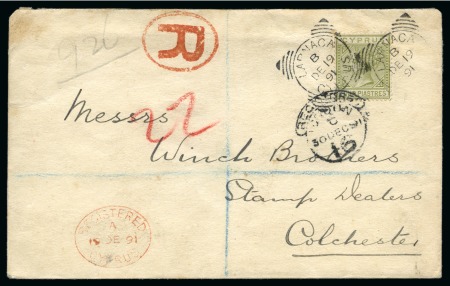 726
R
LARNACA
B
DE 19
91
CYPRUS
LARNACA
B
DE 19
91
CYPRUS
PIASTRES
REGISTERED
30 DEC 91
22
Messrs
Winch Brothers
Stamp Dealers
Colchester
REGISTERED
A
19 DE 91
CYPRUS